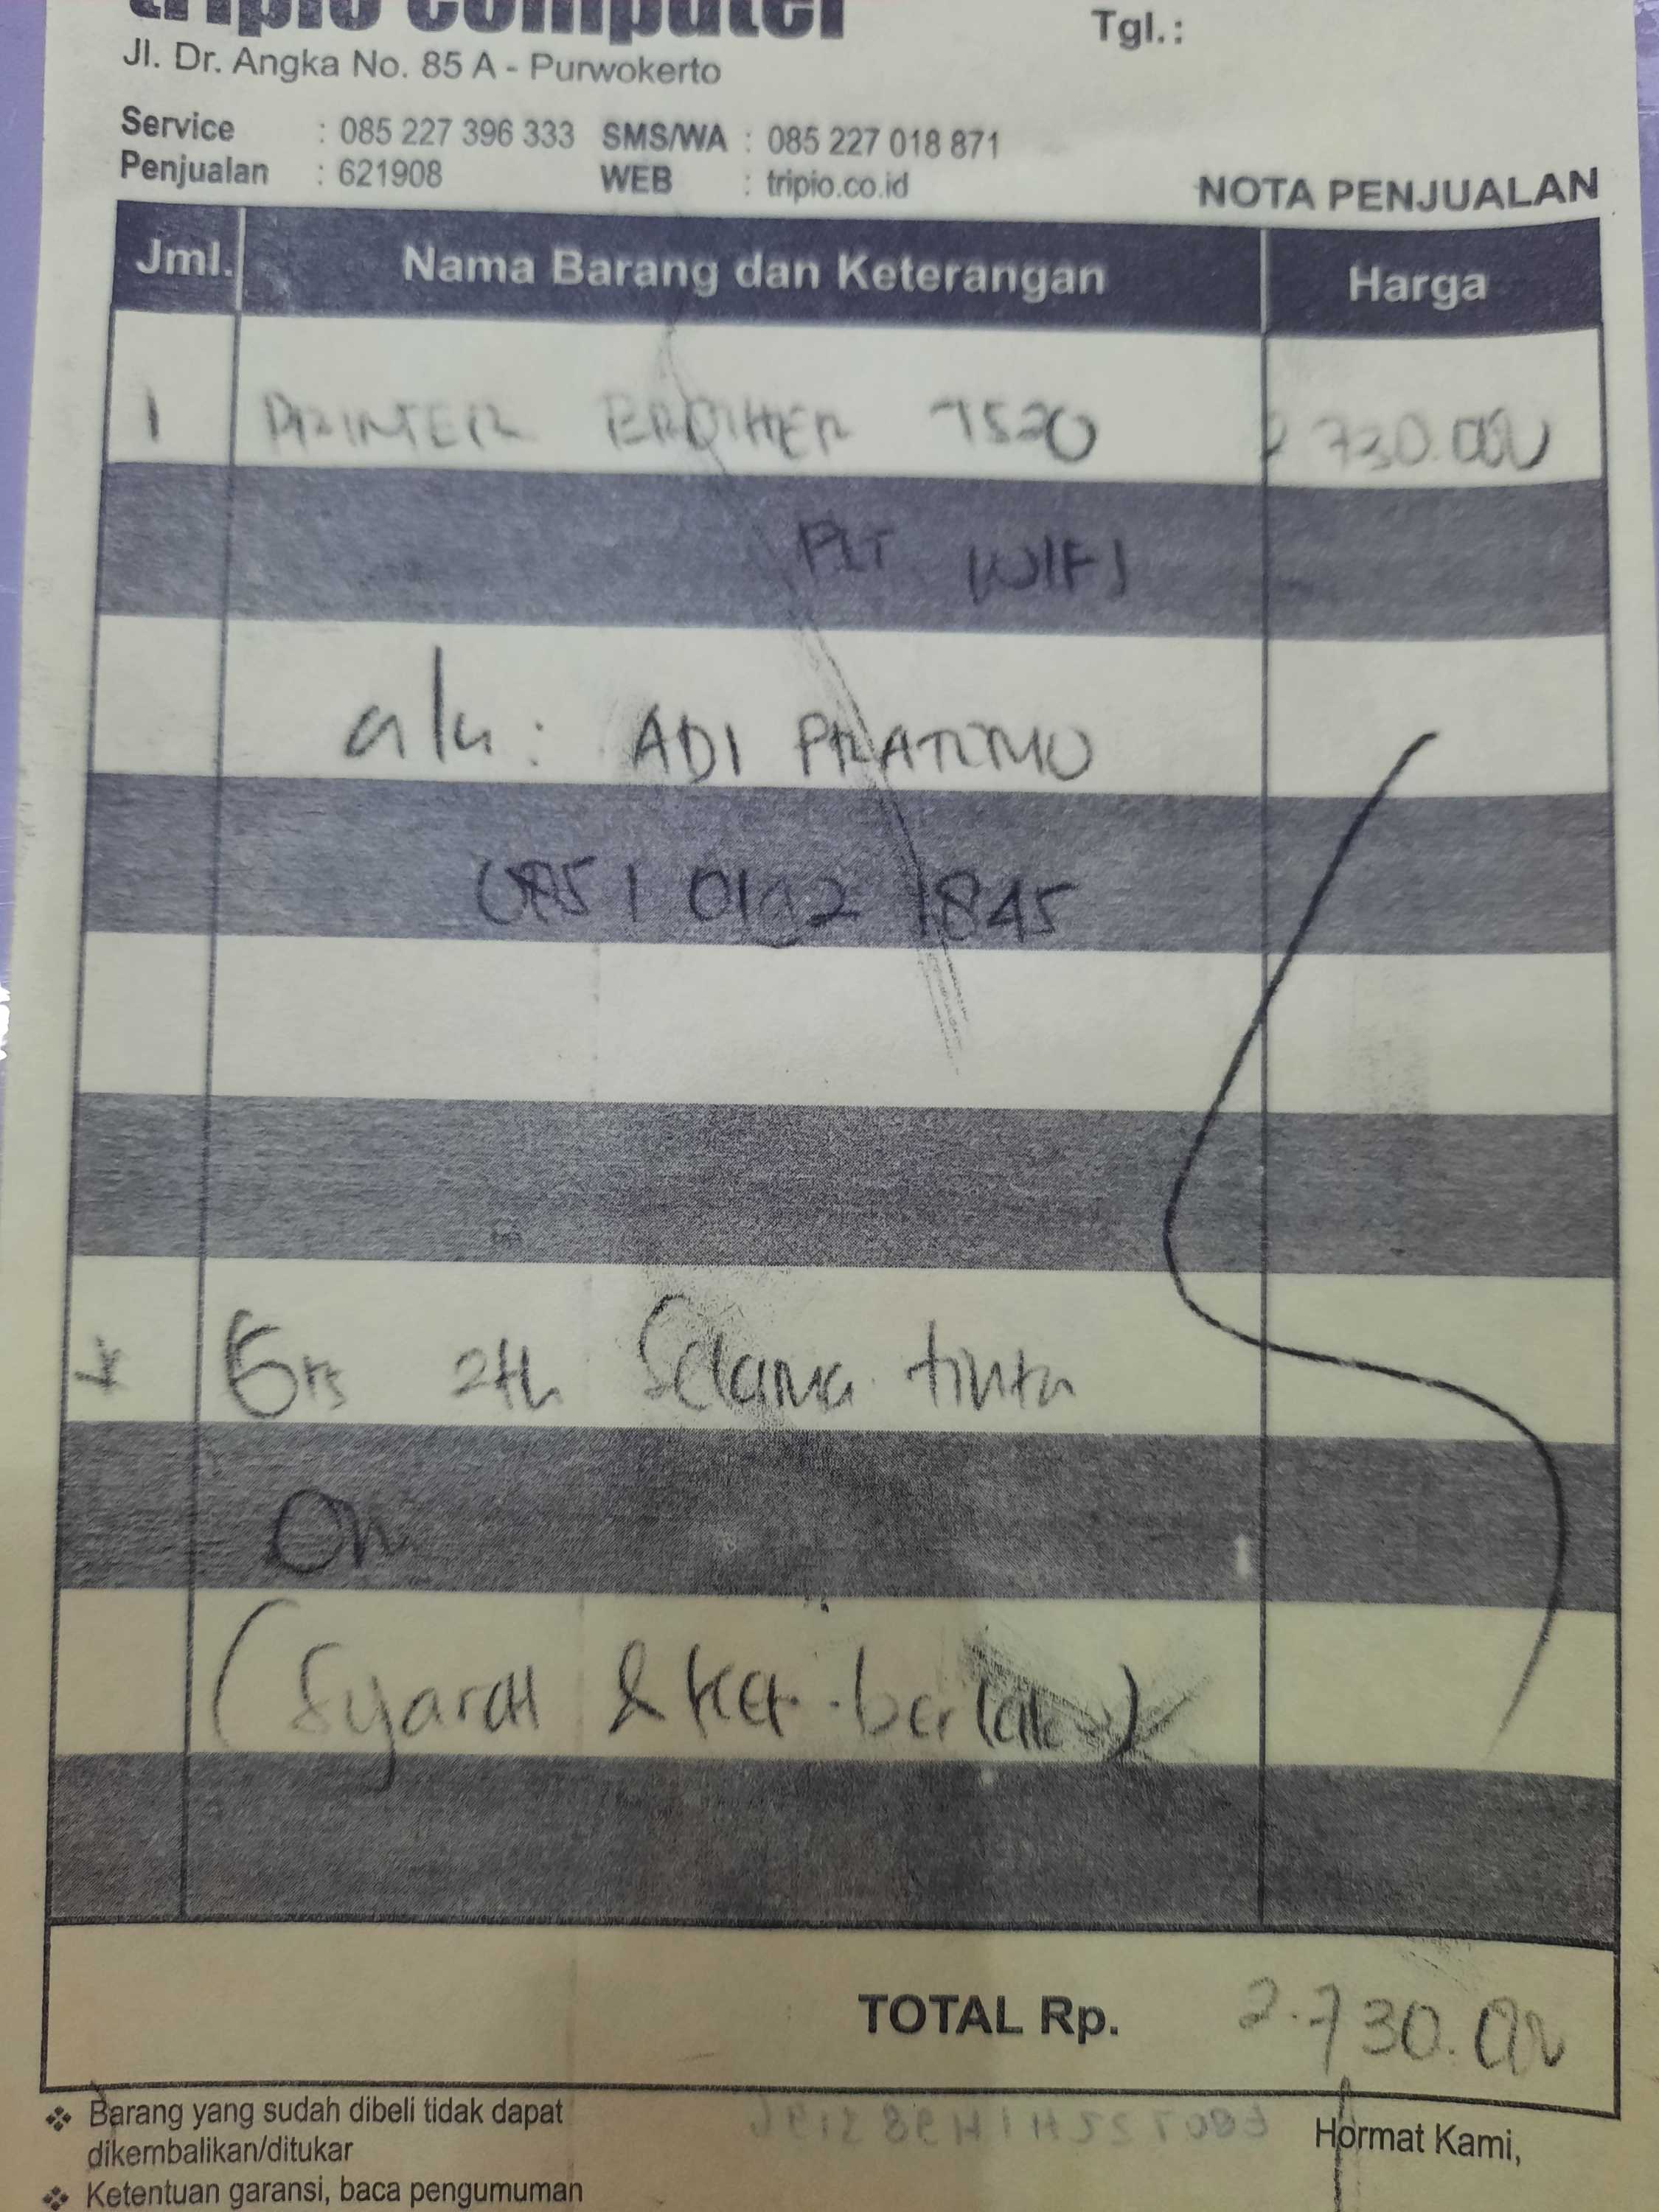 tripio computer
Tgl. :
Jl. Dr. Angka No. 85 A - Purwokerto
Service : 085 227 396 333 SMS/WA : 085 227 018 871
Penjualan : 621908 WEB : tripio.co.id
NOTA PENJUALAN
Jml. Nama Barang dan Keterangan Harga
1 PRINTER BROTHER T520 2 730.000
WIFI
a/n : ADI PRATOMO
2th Selama tinta
Ori
(Syarat & ket. berlaku)
TOTAL Rp. 2.730.000
❖ Barang yang sudah dibeli tidak dapat
dikembalikan/ditukar
Hormat Kami,
❖ Ketentuan garansi, baca pengumuman